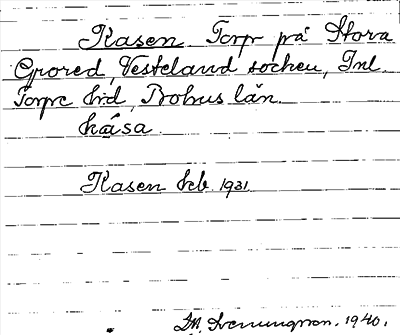 Kasen. Torp på Stora
Grored, Vesteland socken, Inl.
Torpe hrd, Bohus län.
ka̍sa
Kasen hcb. 1931
1940.